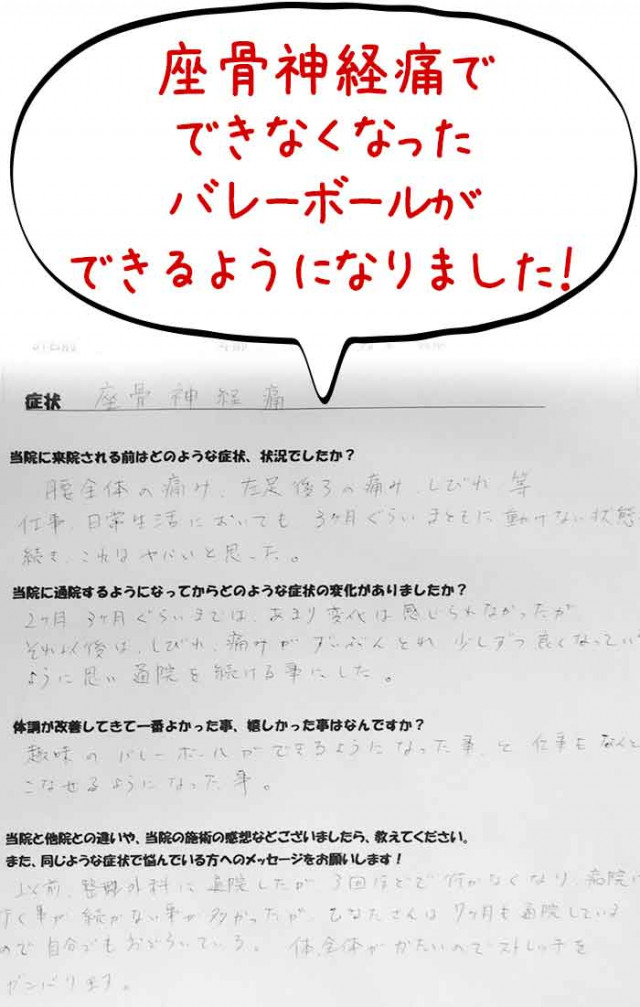 座骨神経痛で
できなくなった
バレーボールが
できるようになりました!
症状 座骨神経痛
当院に来院される前はどのような症状、状況でしたか?
腰全体の痛み、左足後ろの痛み、しびれ、等
仕事、日常生活においても 3ヶ月ぐらいまともに動けない状態
続き、これはヤバいと思った。
当院に通院するようになってからどのような症状の変化がありましたか?
2ヶ月、3ヶ月ぐらいまでは、あまり変化は感じられなかったが
それ以後は、しびれ、痛みがずいぶんとれ 少しずつ良くなってい
ように思い 通院を続ける事にした。
体調が改善してきて一番よかった事、嬉しかった事はなんですか?
趣味の バレーボールができるようになった事、と 仕事もなんと
こなせるようになった事。
当院と他院との違いや、当院の施術の感想などございましたら、教えてください。
また、同じような症状で悩んでいる方へのメッセージをお願いします!
以前、整形外科に通院したが 3回ほどで行かなくなり、病院に
行く事が続かない事が多かったが、ひなたさんは 7ヶ月も通院している
ので自分でもおどろいている。 体全体がかたいのでストレッチを
ガンバリます。